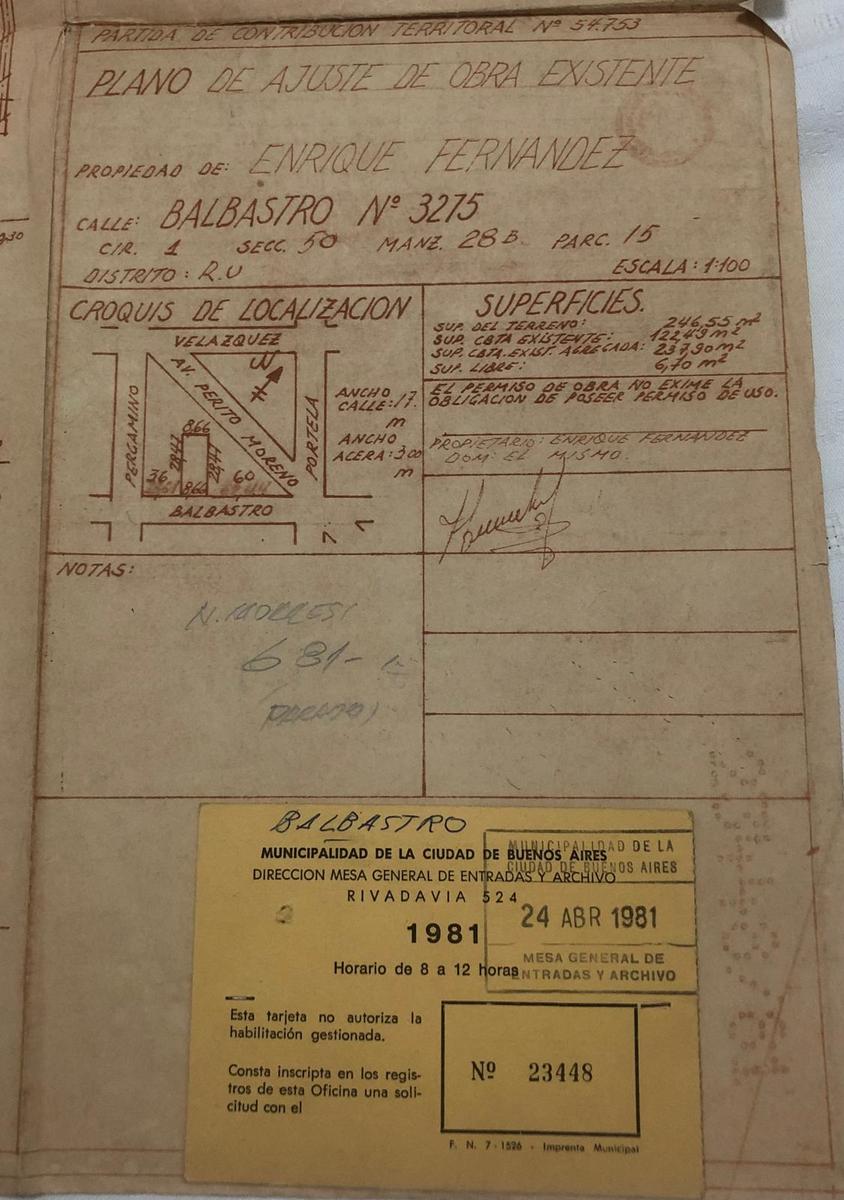 PARTIDA DE CONTRIBUCION TERRITORAL Nº 54.753
PLANO DE AJUSTE DE OBRA EXISTENTE
PROPIEDAD DE: ENRIQUE FERNANDEZ
CALLE: BALBASTRO Nº 3275
CIR. 1 SECC. 50 MANZ. 28 B PARC. 15
DISTRITO: R.U
ESCALA: 1:100
CROQUIS DE LOCALIZACION
VELAZQUEZ
AV. PERITO MORENO
N
PERGAMINO
PORTELA
8,66
28,47
28,47
36
8,66
60
BALBASTRO
ANCHO
CALLE: 17.
m
ANCHO
ACERA: 3,00
m
SUPERFICIES.
SUP. DEL TERRENO: 246,55 m²
SUP. CBTA EXISTENTE: 122,49 m²
SUP. CBTA. EXIST. AGREGADA: 237,90 m²
SUP. LIBRE: 6,70 m²
EL PERMISO DE OBRA NO EXIME LA
OBLIGACION DE POSEER PERMISO DE USO.
PROPIETARIO: ENRIQUE FERNANDEZ
DOM: EL MISMO.
NOTAS:
N. MORRESI
681-
BALBASTRO
MUNICIPALIDAD DE LA CIUDAD DE BUENOS AIRES
DIRECCION MESA GENERAL DE ENTRADAS Y ARCHIVO
RIVADAVIA 524
1981
Horario de 8 a 12 horas
MUNICIPALIDAD DE LA
CIUDAD DE BUENOS AIRES
24 ABR 1981
MESA GENERAL DE
ENTRADAS Y ARCHIVO
Esta tarjeta no autoriza la
habilitación gestionada.
Consta inscripta en los regis-
tros de esta Oficina una soli-
citud con el
Nº 23448
F. N. 7-1526 - Imprenta Municipal